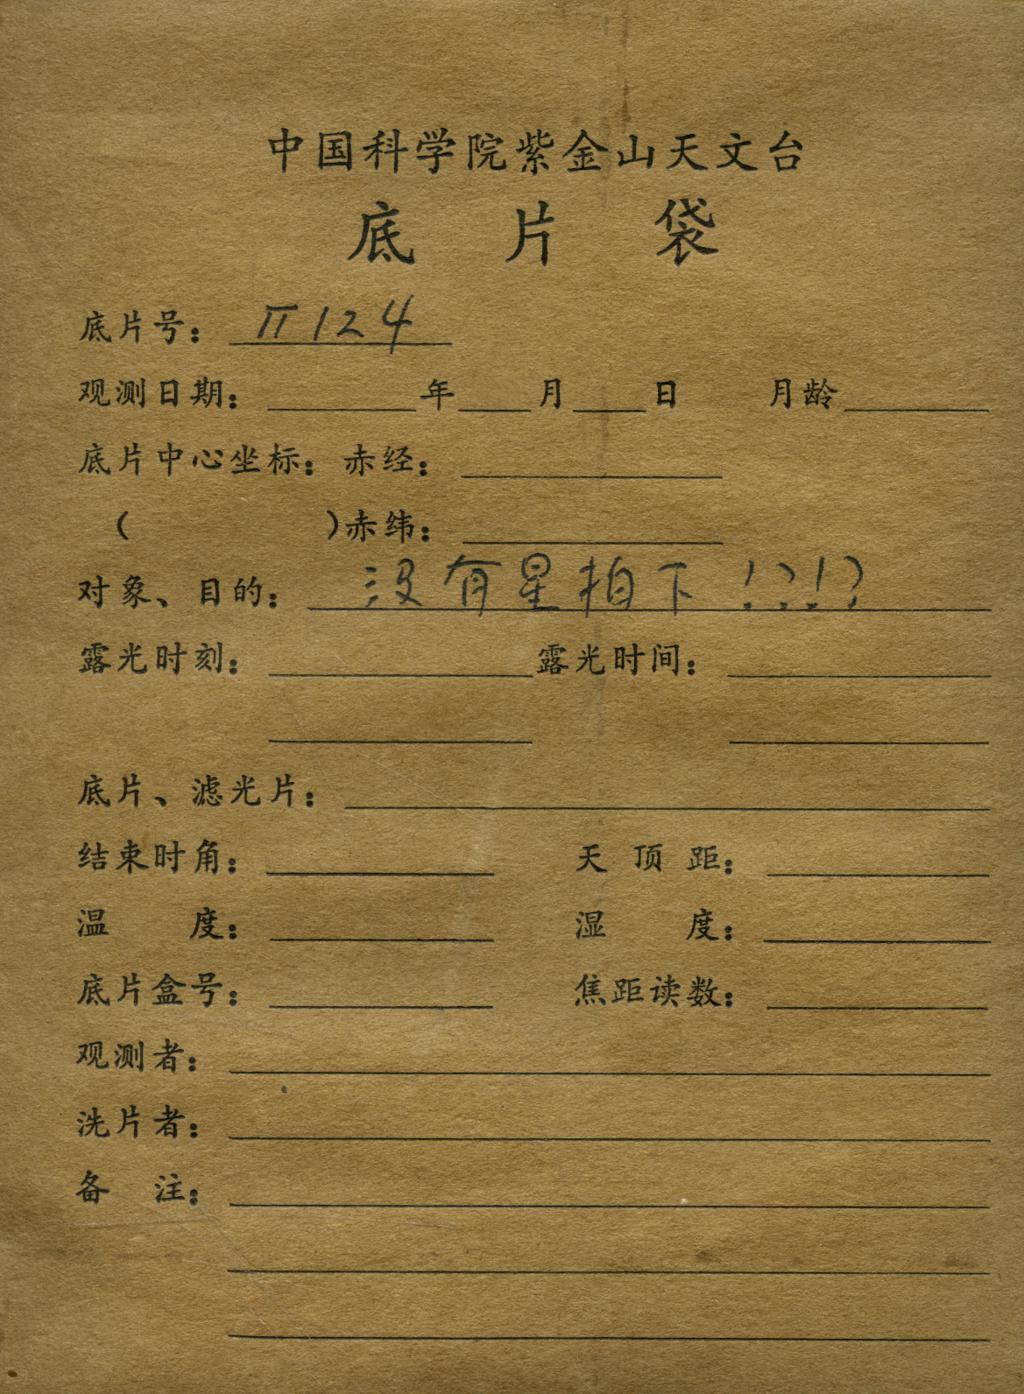 中国科学院紫金山天文台
底片袋
底片号：Ⅱ124
观测日期： 年 月 日 月龄
底片中心坐标：赤经：
（ ）赤纬：
对象、目的：没有星拍下！？！？
露光时刻： 露光时间：
底片、滤光片：
结束时角： 天顶距：
温度： 湿度：
底片盒号： 焦距读数：
观测者：
洗片者：
备注：